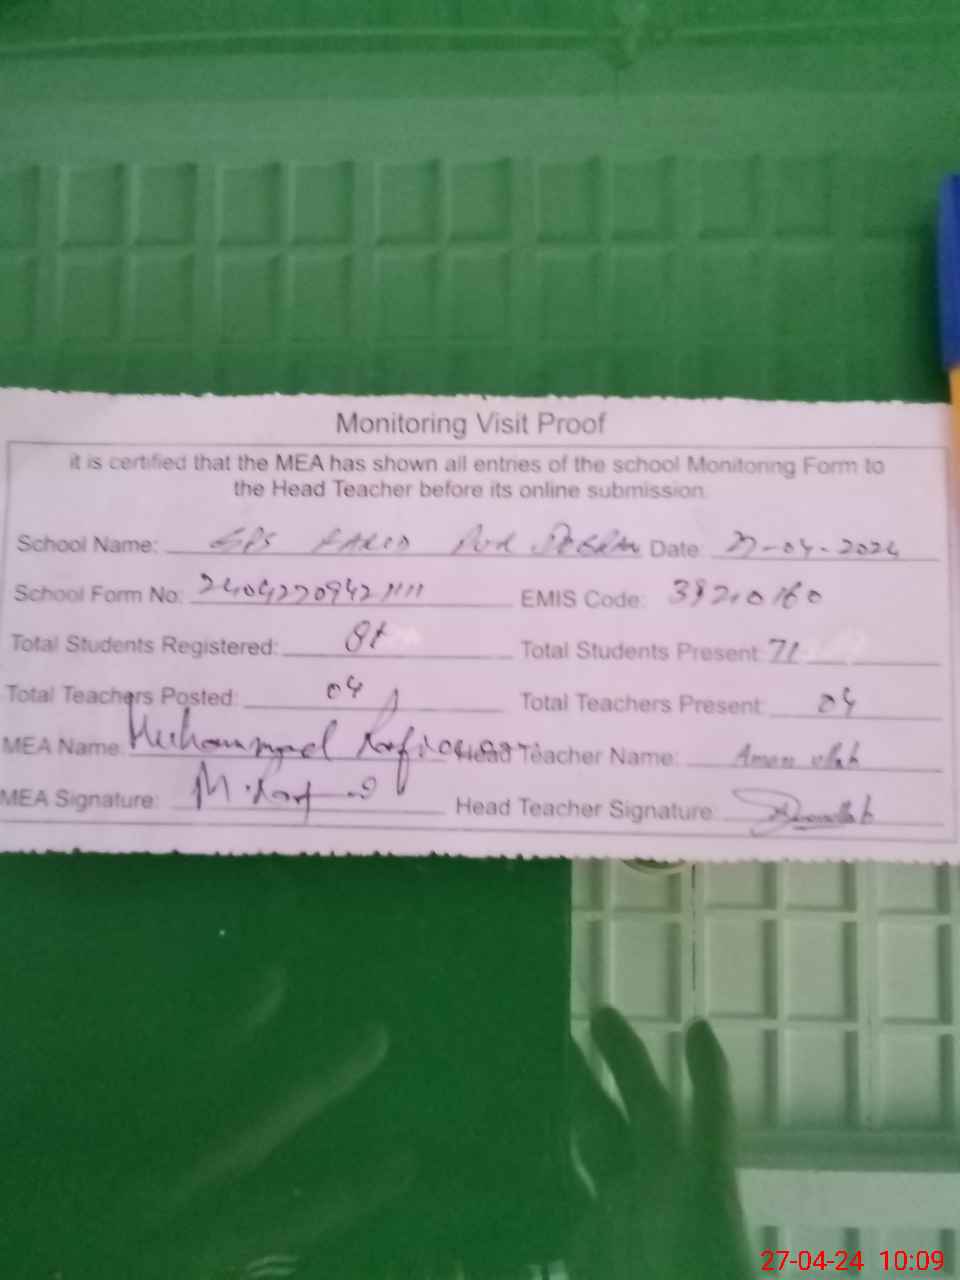 Monitoring Visit Proof
it is certified that the MEA has shown all entries of the school Monitoring Form to
the Head Teacher before its online submission.
School Name: GPS FARID PUR Date 27-04-2024
School Form No: EMIS Code:
Total Students Registered: Total Students Present: 71
Total Teachers Posted: 04 Total Teachers Present: 04
MEA Name: Muhammad Head Teacher Name: Aman ullah
MEA Signature: Head Teacher Signature:
27-04-24 10:09